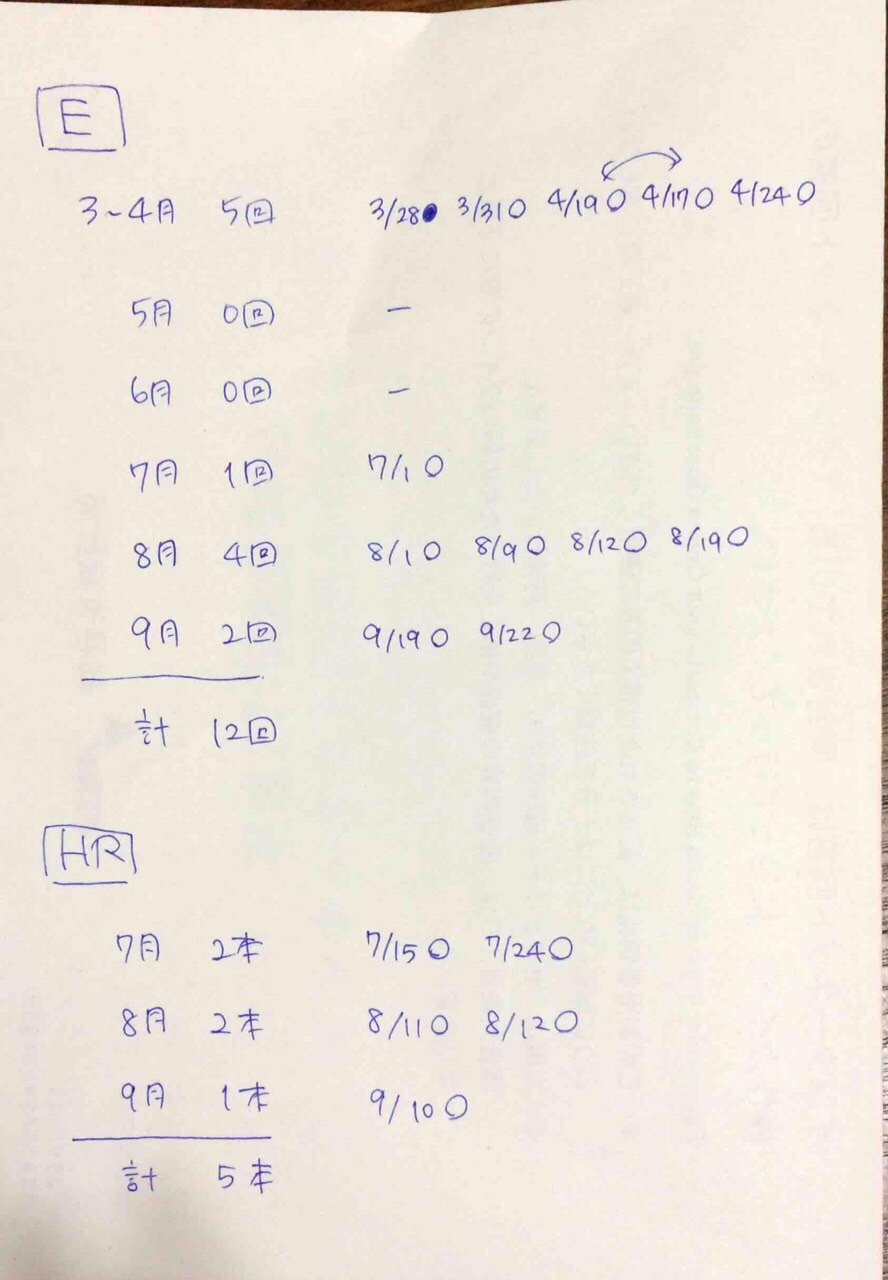 E
3~4月 5回 3/28● 3/31○ 4/19○ 4/17○ 4/24○
5月 0回 –
6月 0回 –
7月 1回 7/1○
8月 4回 8/1○ 8/9○ 8/12○ 8/19○
9月 2回 9/19○ 9/22○
計 12回
HR
7月 2本 7/15○ 7/24○
8月 2本 8/11○ 8/12○
9月 1本 9/10○
計 5本